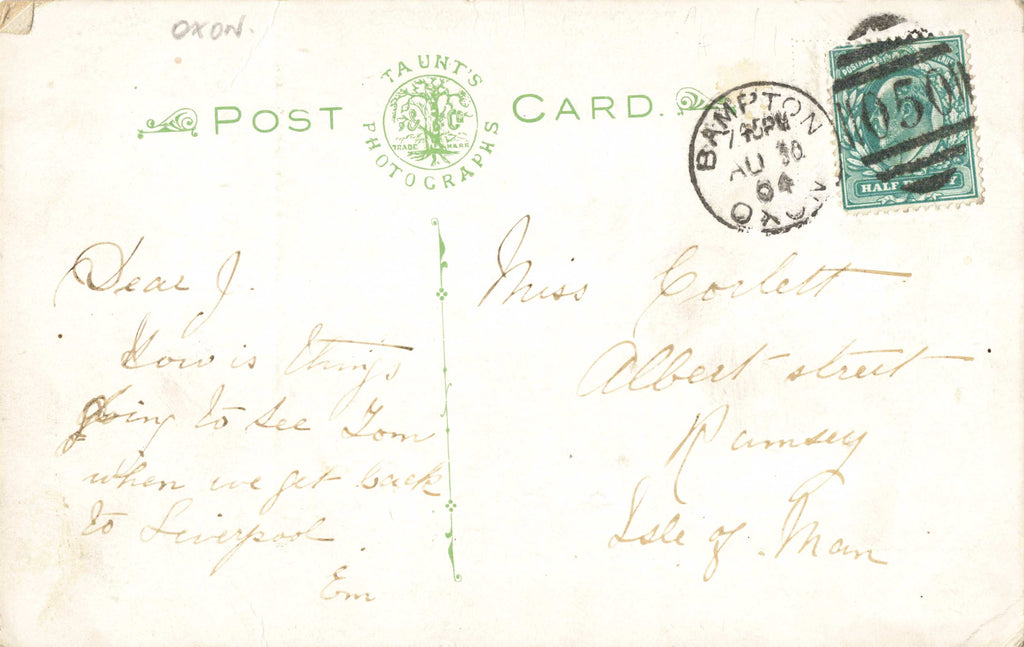 OXON.
POST CARD.
TAUNT'S
PHOTOGRAPHS
TRADE MARK
BAMPTON
7 45PM
AU 30
04
OXON
050
HALF
Dear J.
How is things
going to see Tom
when we get back
to Liverpool
Em
Miss Corlett
Albert street
Ramsey
Isle of Man